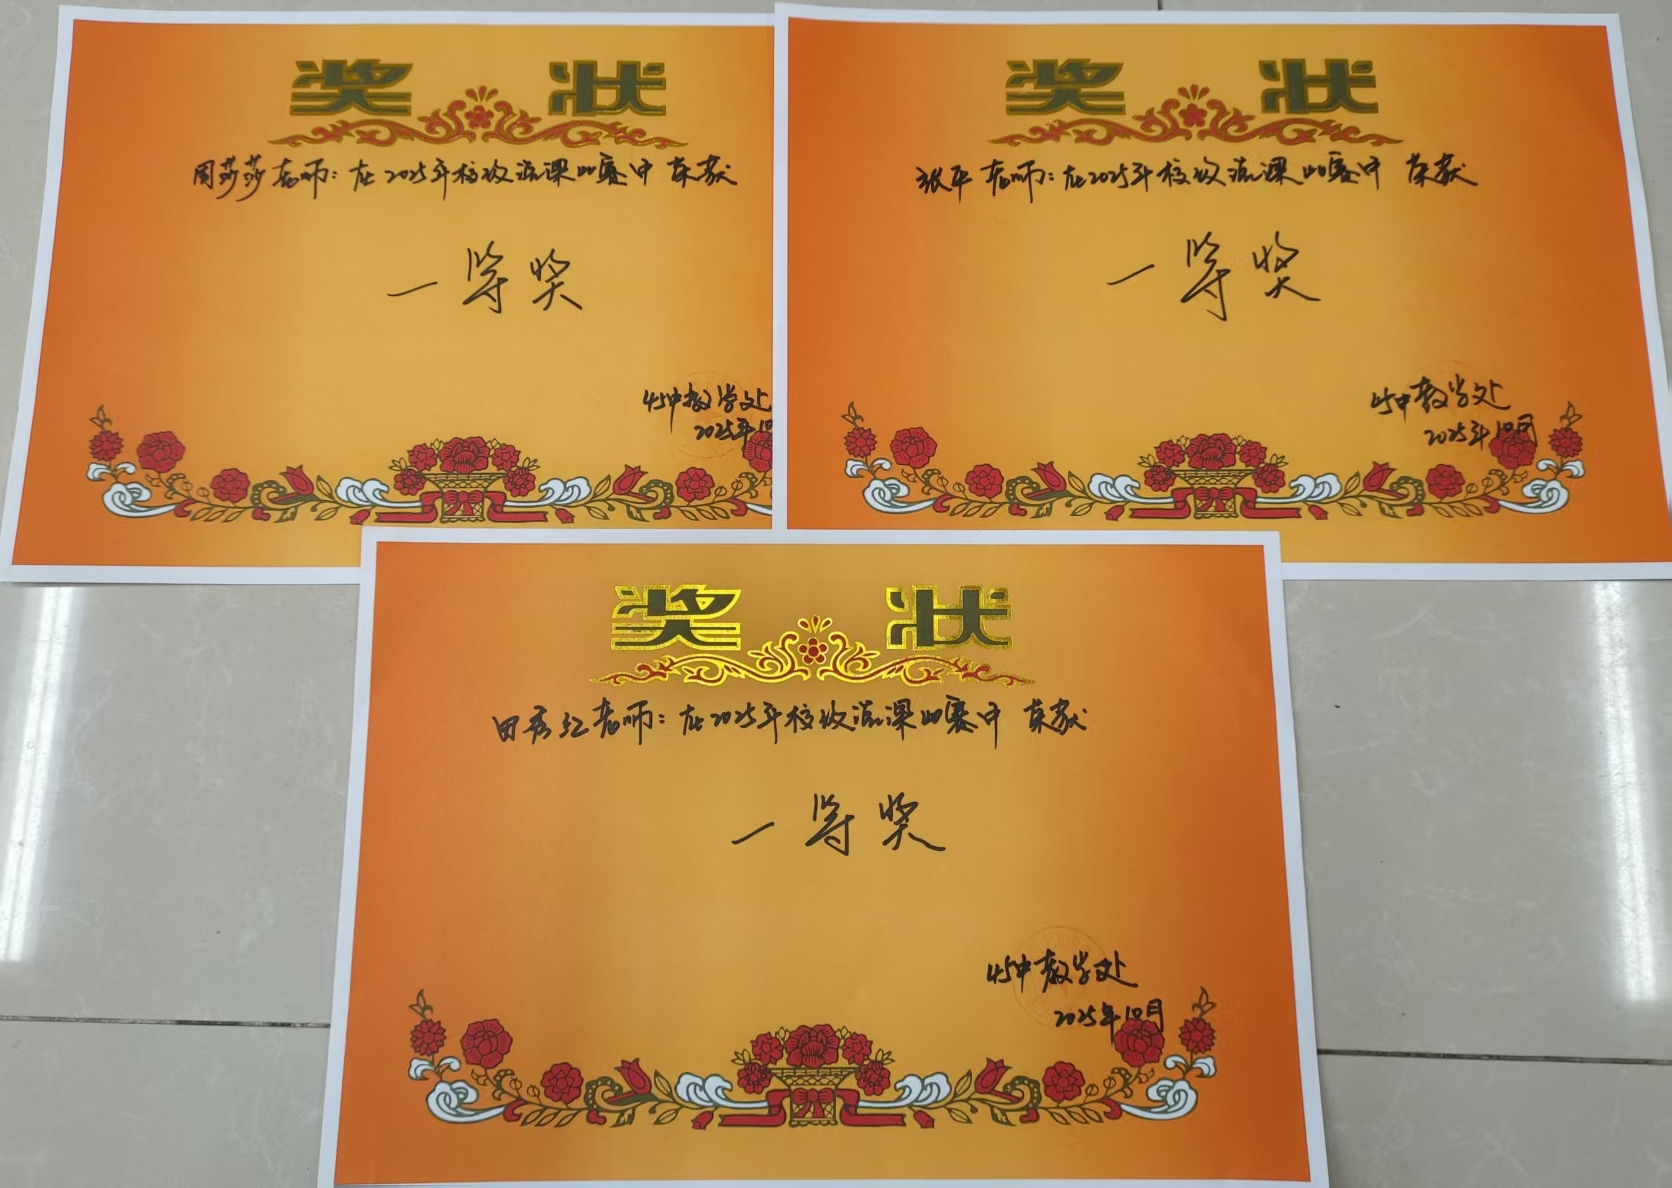 奖 状
周莎莎老师：在2025年校级说课比赛中 荣获
一等奖
45中教学处
2025年10
奖 状
张平老师：在2025年校级说课比赛中 荣获
一等奖
45中教学处
2025年10月
奖 状
田秀红老师：在2025年校级说课比赛中 荣获
一等奖
45中教学处
2025年10月